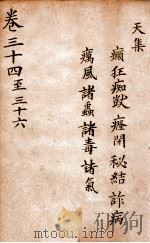 天集
癲狂痴獃癃閉秘結詐病
癘風諸蟲諸毒諸氣
卷三十四至三十六
mtoou.info